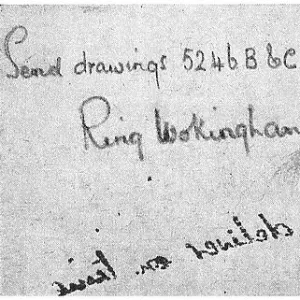 Send drawings 5246 B & C
Ring Wokingham
deliver on time